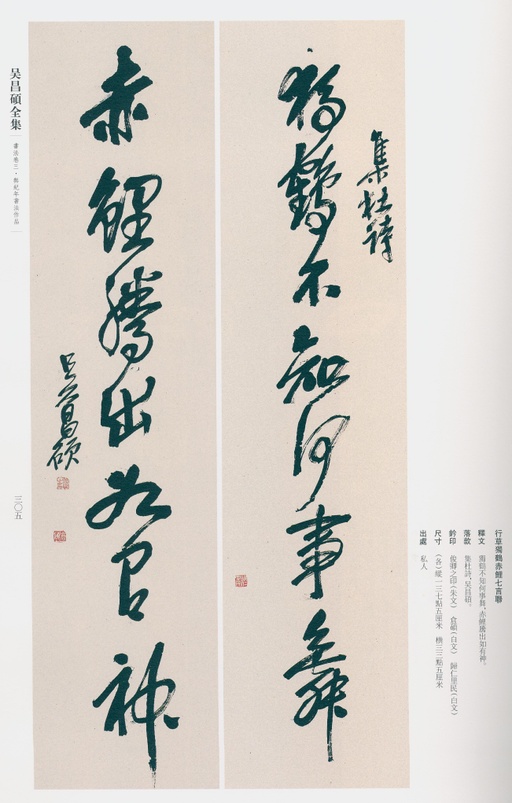 集杜詩
獨鶴不知何事舞
赤鯉騰出如有神
吳昌碩
行草獨鶴赤鯉七言聯
釋文 獨鶴不知何事舞，赤鯉騰出如有神。
落款 集杜詩，吳昌碩。
鈐印 俊卿之印（朱文） 倉碩（白文） 歸仁里民（白文）
尺寸 （各）縱一三七點五厘米 橫三三點五厘米
出處 私人
吴昌碩全集
書法卷三·無紀年書法作品
三〇五